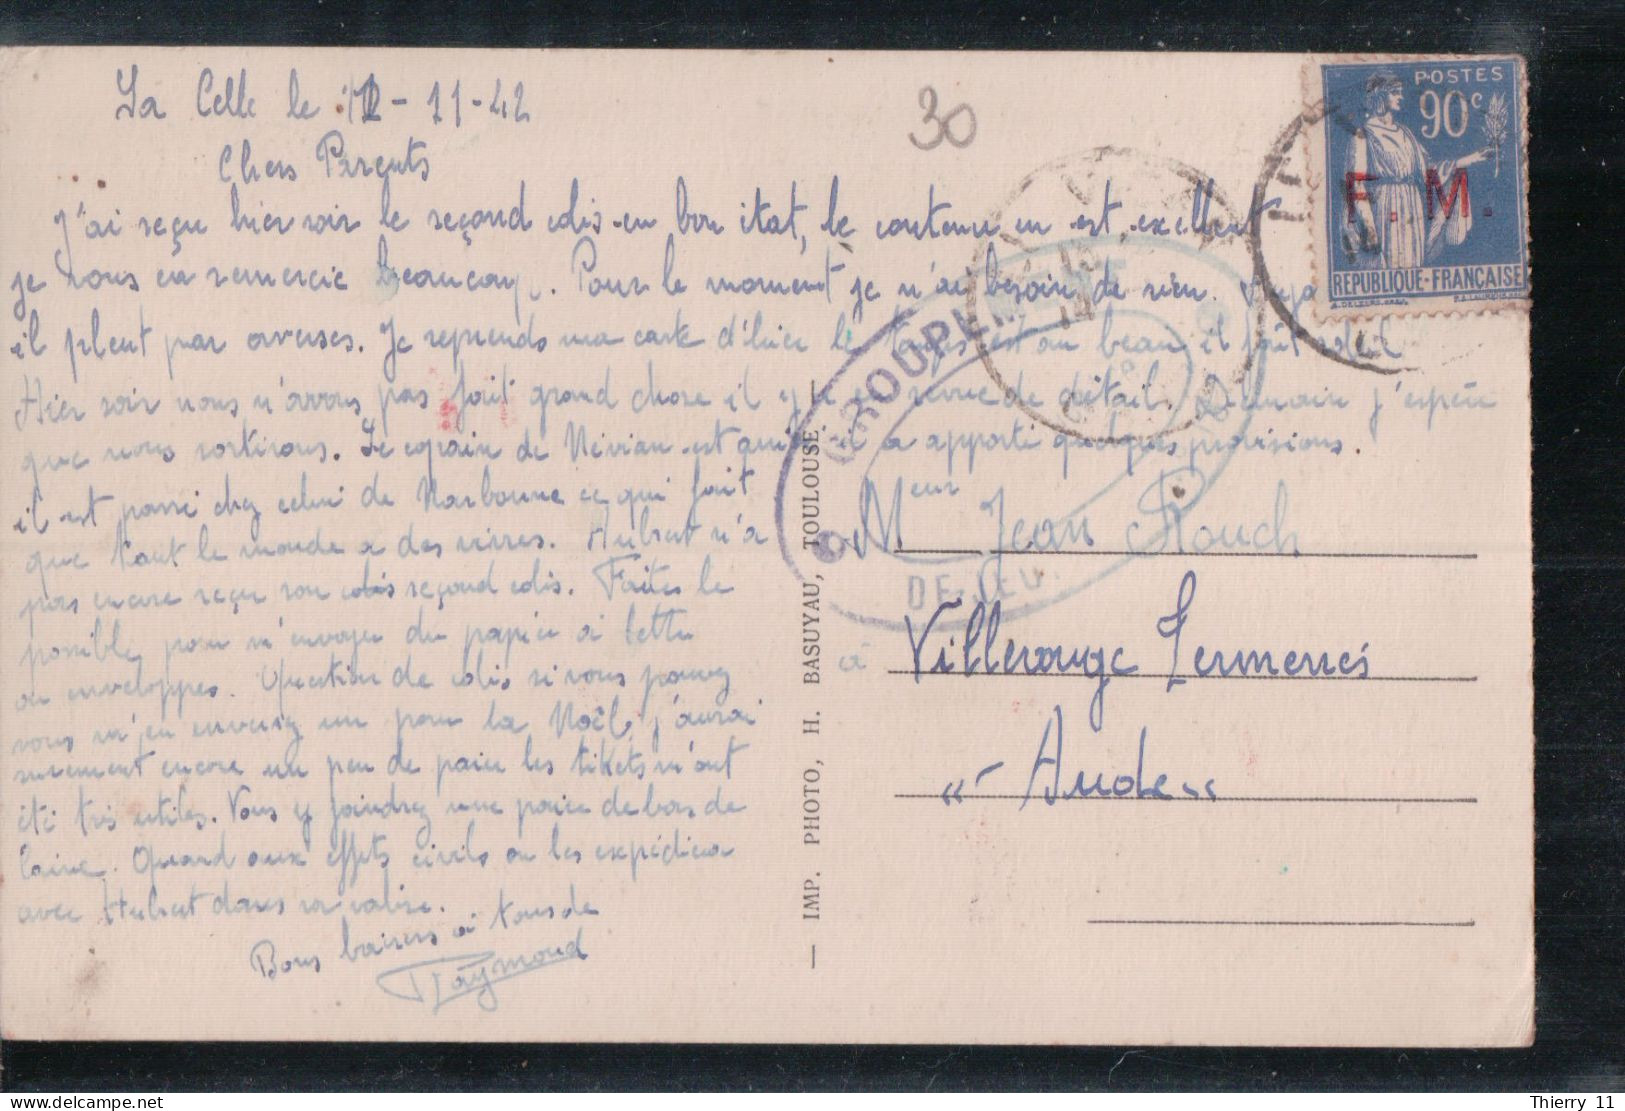 La Celle le 12-11-42
Chers Parents
J'ai reçu hier soir le seçond colis en bon itat, le contenu en est excellent
je vous en remercie beaucoup. Pour le moment je n'ai besoin de rien.
il pleut par averses. Je reprends ma carte d'hier le temps est au beau il fait soleil
Hier soir nous n'avons pas fait grand chose il y a eu revue de détail. Demain j'espère
que nous sortirons. Le copain de Névian est ici il a apporté quelques provisions.
il est passé chez celui de Narbonne ce qui fait
que tout le monde a des vivres. Hubert n'a
pas encore reçu son colis seçond colis. Faites le
possible pour m'envoyer du papier à lettre
ou enveloppes. Question de colis si vous pouvez
vous m'en enverrez un pour la Noël, j'aurai
surement encore un peu de pain les tikets m'ont
été très utiles. Vous y joindrez une paire de bas de
laine. Quand aux effets civils on les expédiera
avec Hubert dans sa valise.
Bons baisers à tous de
Raymond
30
POSTES
90c
F. M.
REPUBLIQUE-FRANÇAISE
GROUPEM
DE JEU.
— IMP. PHOTO, H. BASUYAU, TOULOUSE —
Meur Jean Rouch
à Villerouge Termenes
"- Aude-"
Thierry 11